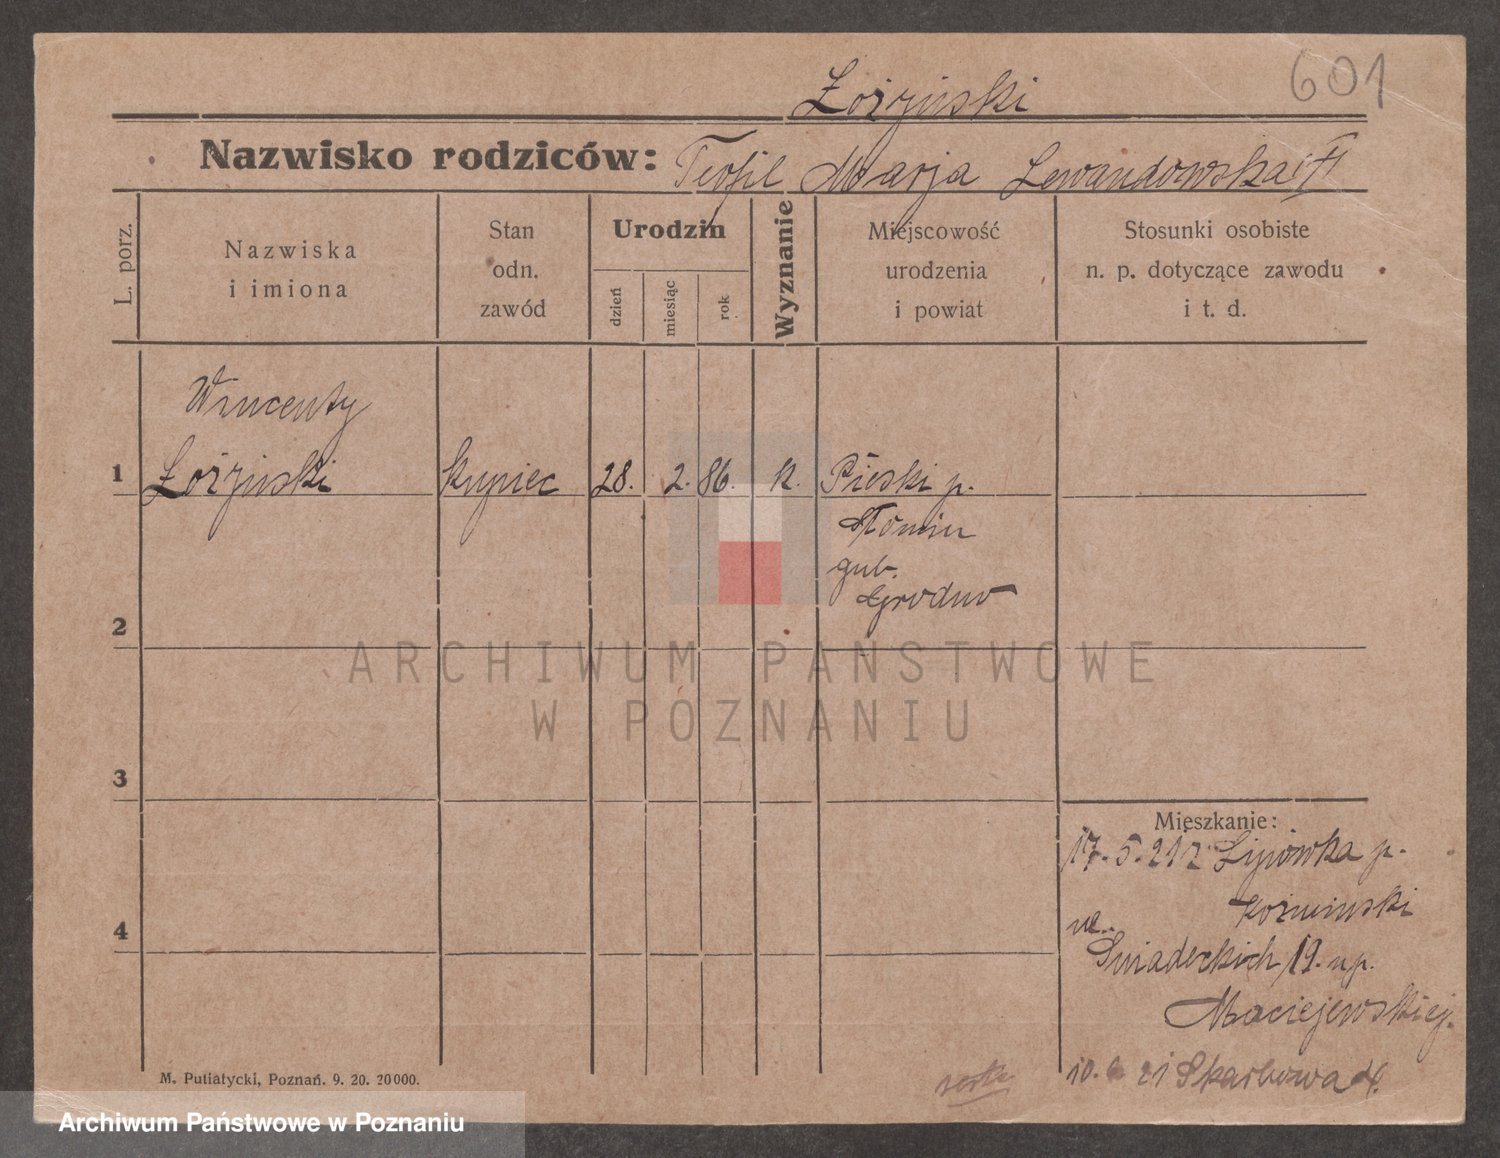 601
Łożyński
Nazwisko rodziców: Teofil Marja Lewandowska
L. porz.
Nazwiska
i imiona
Stan
odn.
zawód
Urodzin
dzień
miesiąc
rok
Wyznanie
Miejscowość
urodzenia
i powiat
Stosunki osobiste
n. p. dotyczące zawodu
i t. d.
Wincenty
1 Łożyński kupiec 28. 2. 86. k. Pieski p.
Słonim
gub.
Grodno
2
3
4
Mieszkanie:
17. 5. 21 z Lipówka p.
Koźmiński
ul.
Śniadeckich 19. u p.
Maciejewskiej.
10. 6 21 Skarbowa
M. Putiatycki, Poznań. 9. 20. 20000.
ARCHIWUM PAŃSTWOWE
W POZNANIU
Archiwum Państwowe w Poznaniu